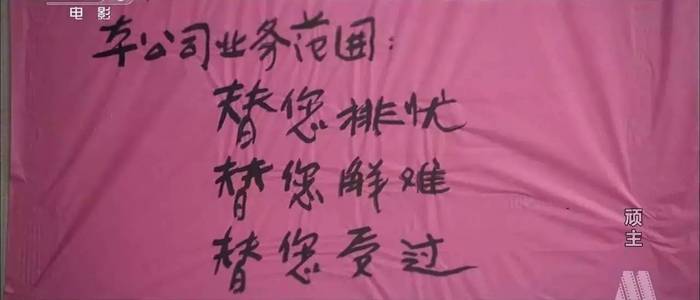 电影
本公司业务范围:
替您排忧
替您解难
替您受过
顽主